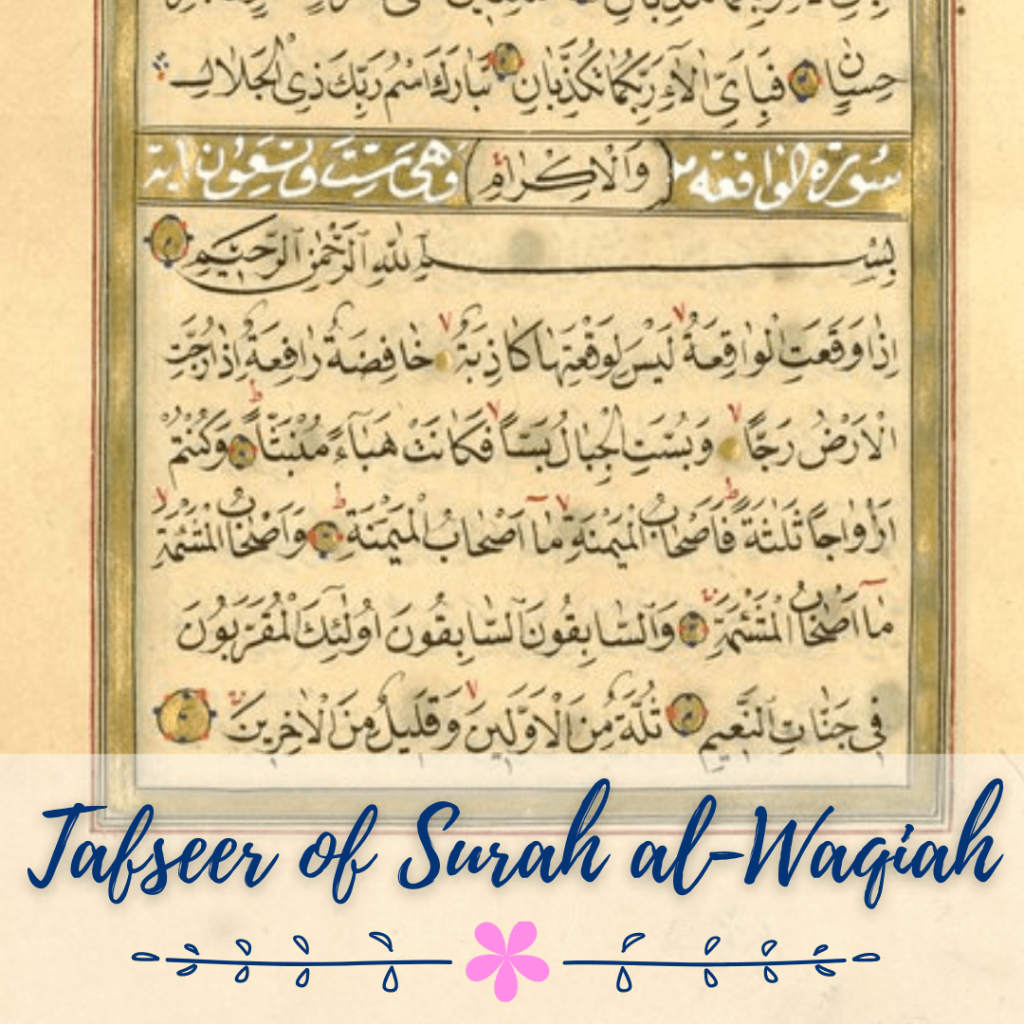 حِسَانٍ فَبِاَىِّ اٰلَاۤءِ رَبِّكُمَا تُكَذِّبَانِ تَبَارَكَ اسْمُ رَبِّكَ ذِى الْجَلَالِ
سُورَةُ الْوَاقِعَه وَالْاِكْرَامِ وَهِىَ سِتٌّ وَتِسْعُونَ اٰيَة
بِسْمِ اللّٰهِ الرَّحْمٰنِ الرَّحِيمِ
اِذَا وَقَعَتِ الْوَاقِعَةُ لَيْسَ لِوَقْعَتِهَا كَاذِبَةٌ خَافِضَةٌ رَافِعَةٌ اِذَا رُجَّتِ
الْاَرْضُ رَجًّا وَبُسَّتِ الْجِبَالُ بَسًّا فَكَانَتْ هَبَاۤءً مُنْبَثًّا وَكُنْتُمْ
اَزْوَاجًا ثَلٰثَةً فَاَصْحَابُ الْمَيْمَنَةِ مَاۤ اَصْحَابُ الْمَيْمَنَةِ وَاَصْحَابُ الْمَشْـَٔمَةِ
مَاۤ اَصْحَابُ الْمَشْـَٔمَةِ وَالسَّابِقُونَ السَّابِقُونَ اُولٰۤئِكَ الْمُقَرَّبُونَ
فِى جَنَّاتِ النَّعِيمِ ثُلَّةٌ مِنَ الْاَوَّلِينَ وَقَلِيلٌ مِنَ الْاٰخِرِينَ
Tafseer of Surah al-Waqiah